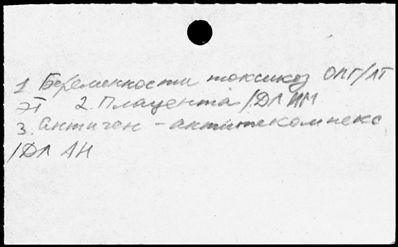 1 Беременности токсикоз ОПГ/ЛТ
ЭТ 2. Плацента /ДЛ ИМ
3. Антиген - антителокомплекс
/ДЛ АН